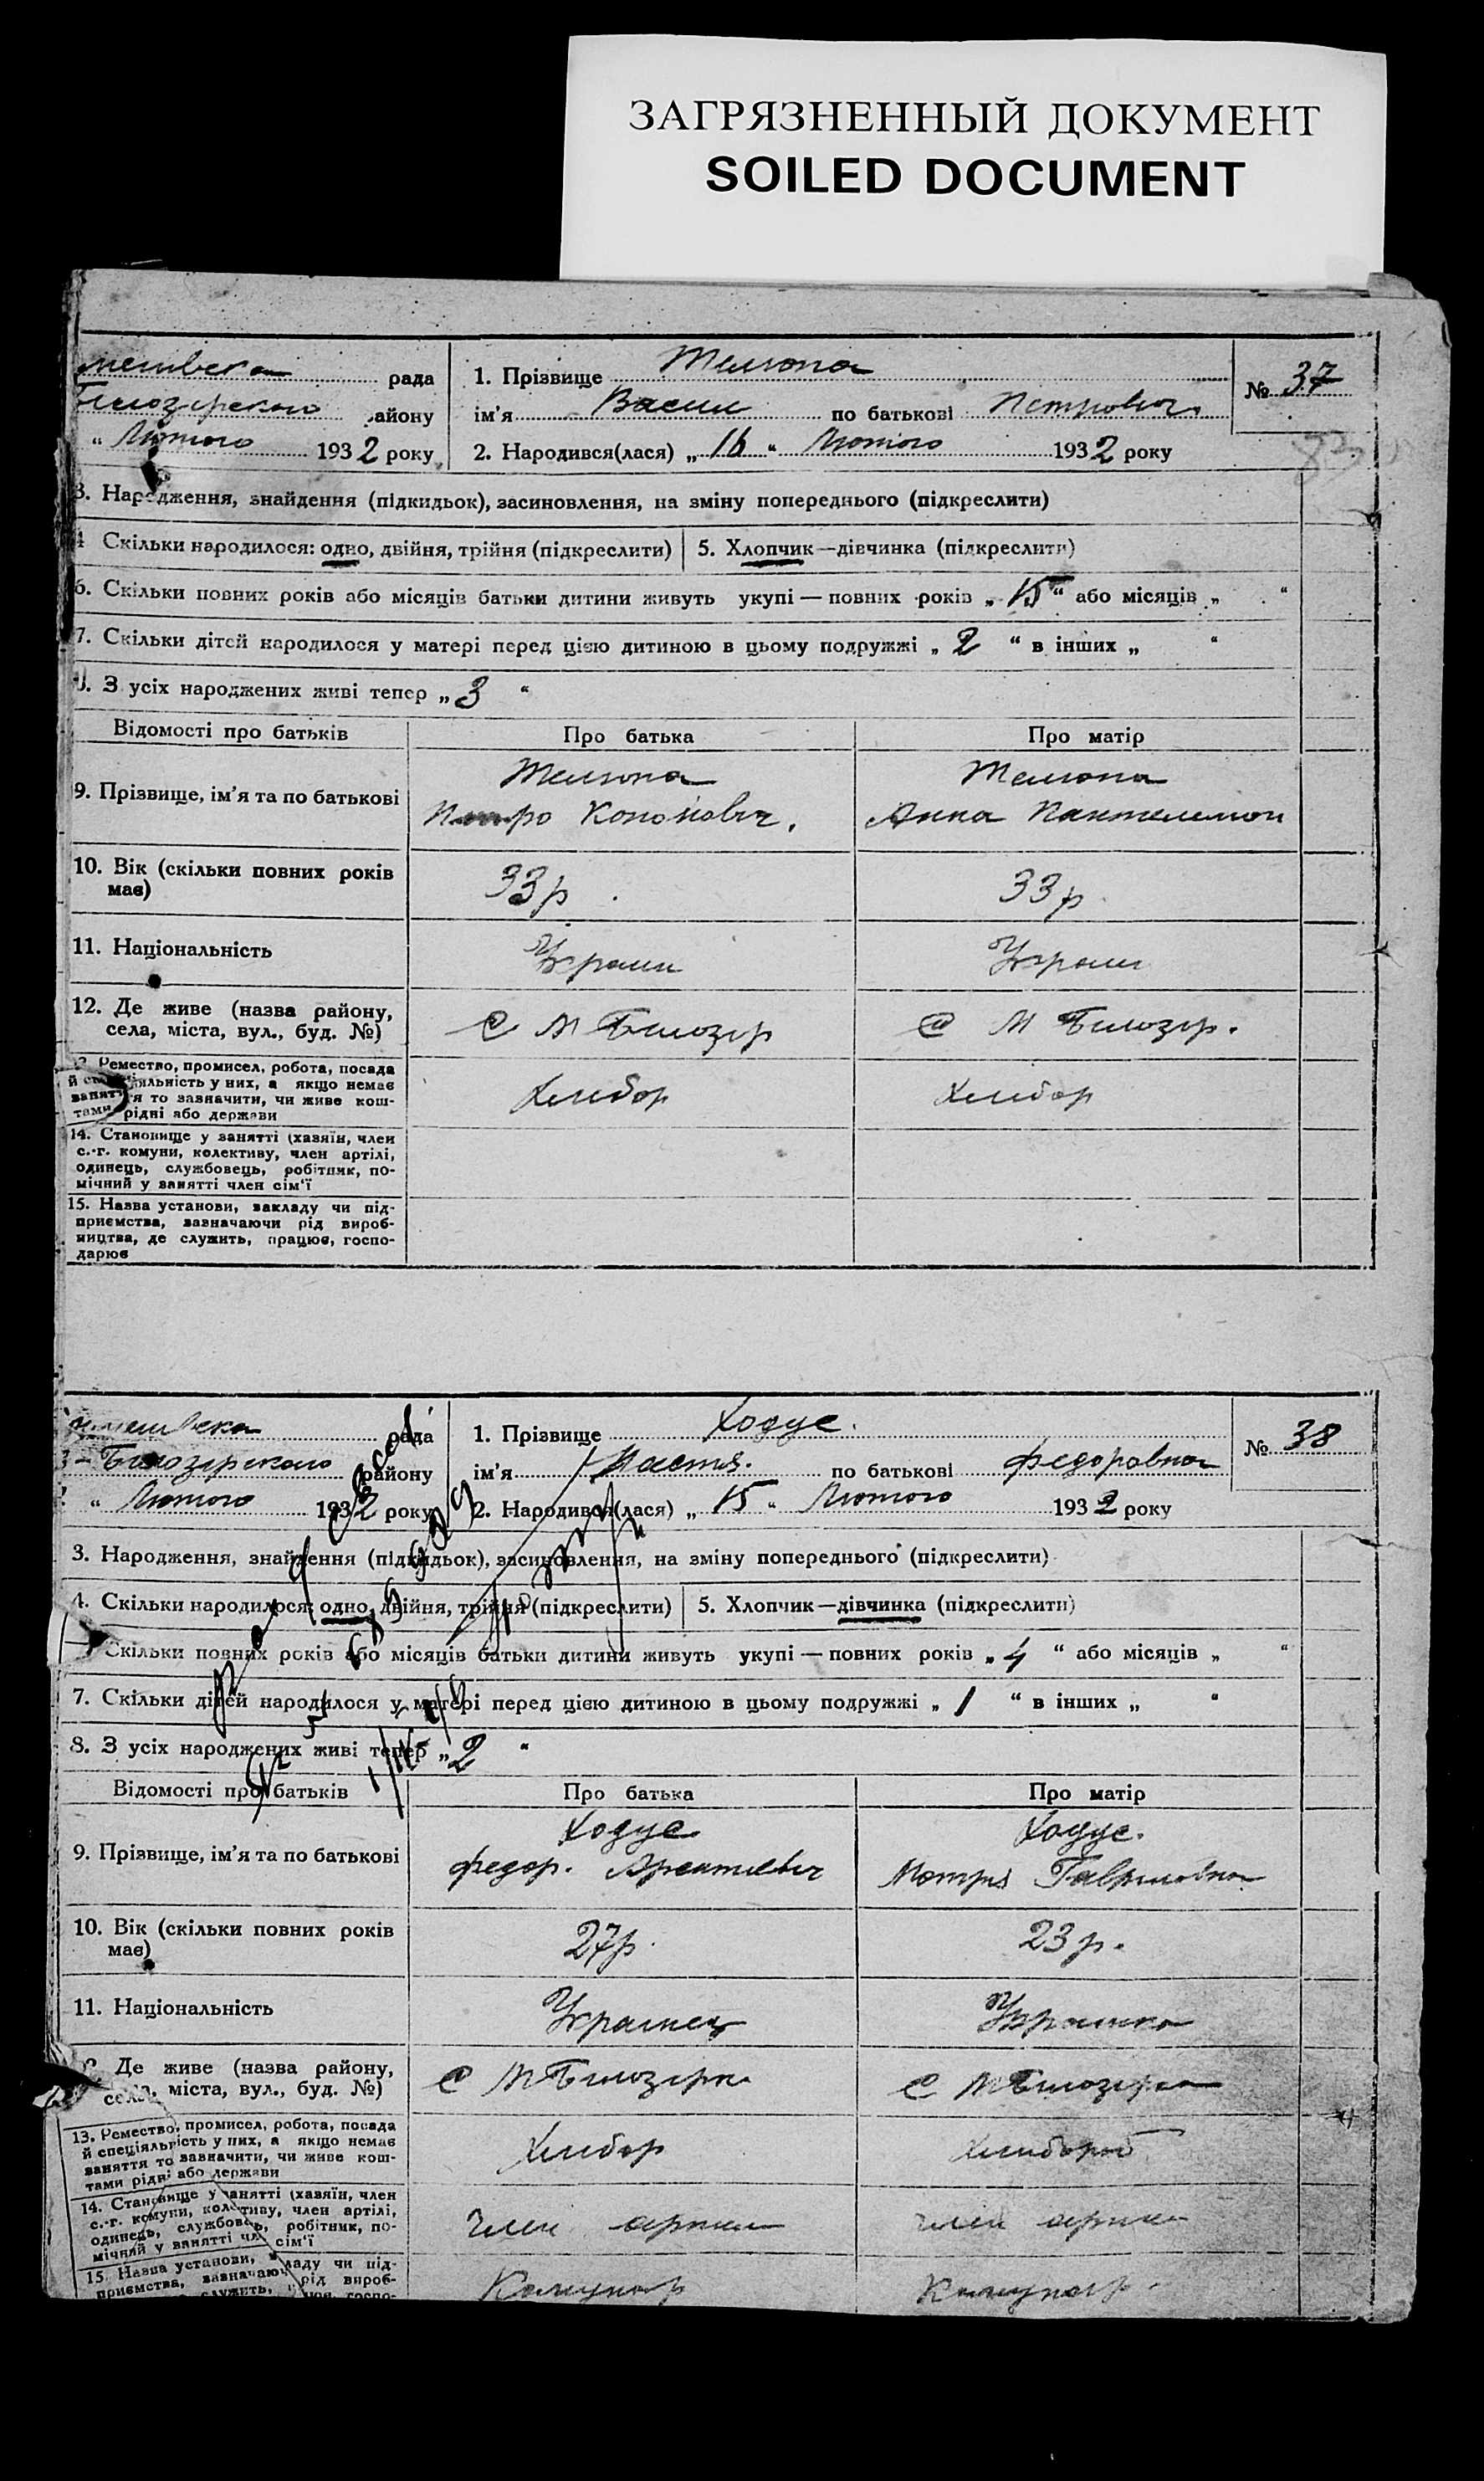 ЗАГРЯЗНЕННЫЙ ДОКУМЕНТ
SOILED DOCUMENT
рада
району
" Лютого 1932 року
1. Прізвище
№ 37
ім'я Васил по батькові Петрович
2. Народився(лася) „ 16 " Лютого 1932 року
3. Народження, знайдення (підкидьок), засиновлення, на зміну попереднього (підкреслити)
4 Скільки народилося: одно, двійня, трійня (підкреслити)
5. Хлопчик—дівчинка (підкреслити)
6. Скільки повних років або місяців батьки дитини живуть укупі — повних років „ 15 " або місяців „ "
7. Скільки дітей народилося у матері перед цією дитиною в цьому подружжі „ 2 " в інших „ "
8. З усіх народжених живі тепер „ 3 "
Відомості про батьків
Про батька
Про матір
9. Прізвище, ім'я та по батькові
Петро Кононович.
Анна Пантелемон
10. Вік (скільки повних років
має)
33 р.
33 р.
11. Національність
Україн
Україн
12. Де живе (назва району,
села, міста, вул., буд. №)
С М Білозер
С М Білозер.
13. Ремество, промисел, робота, посада
й спеціяльність у них, а якщо немає
заняття то зазначити, чи живе кош-
тами рідні або держави
Хлибор
Хлибор
14. Становище у занятті (хазяїн, член
с.-г. комуни, колективу, член артілі,
одинець, службовець, робітник, по-
мічний у занятті член сім'ї
15. Назва установи, закладу чи під-
приємства, зазначаючи рід вироб-
ництва, де служить, працює, госпо-
дарює
рада
Білозерского району
" Лютого 1932 року
1. Прізвище Ходус.
№ 38
ім'я Настя. по батькові Федоровна
2. Народився(лася) „ 15 " Лютого 1932 року
3. Народження, знайдення (підкидьок), засиновлення, на зміну попереднього (підкреслити)
4. Скільки народилося: одно, двійня, трійня (підкреслити)
5. Хлопчик—дівчинка (підкреслити)
Скільки повних років або місяців батьки дитини живуть укупі — повних років „ 4 " або місяців „ "
7. Скільки дітей народилося у матері перед цією дитиною в цьому подружжі „ 1 " в інших „ "
8. З усіх народжених живі тепер „ 2 "
Відомості про батьків
Про батька
Про матір
9. Прізвище, ім'я та по батькові
Ходус
Федор.
Ходус.
Мотря Гавриловна
10. Вік (скільки повних років
має)
27 р.
23 р.
11. Національність
Українец
Українка
Де живе (назва району,
села, міста, вул., буд. №)
С М Білозерка
С М Білозерка
13. Ремество, промисел, робота, посада
й спеціяльність у них, а якщо немає
заняття то зазначити, чи живе кош-
тами рідні або держави
Хлибор
Хлибороб
14. Становище у занятті (хазяїн, член
с.-г. комуни, колективу, член артілі,
одинець, службовець, робітник, по-
мічний у занятті член сім'ї
Член артили
член артили
15. Назва установи, закладу чи під-
приємства, зазначаючи рід вироб-
служить,
Комунар
Комунар.